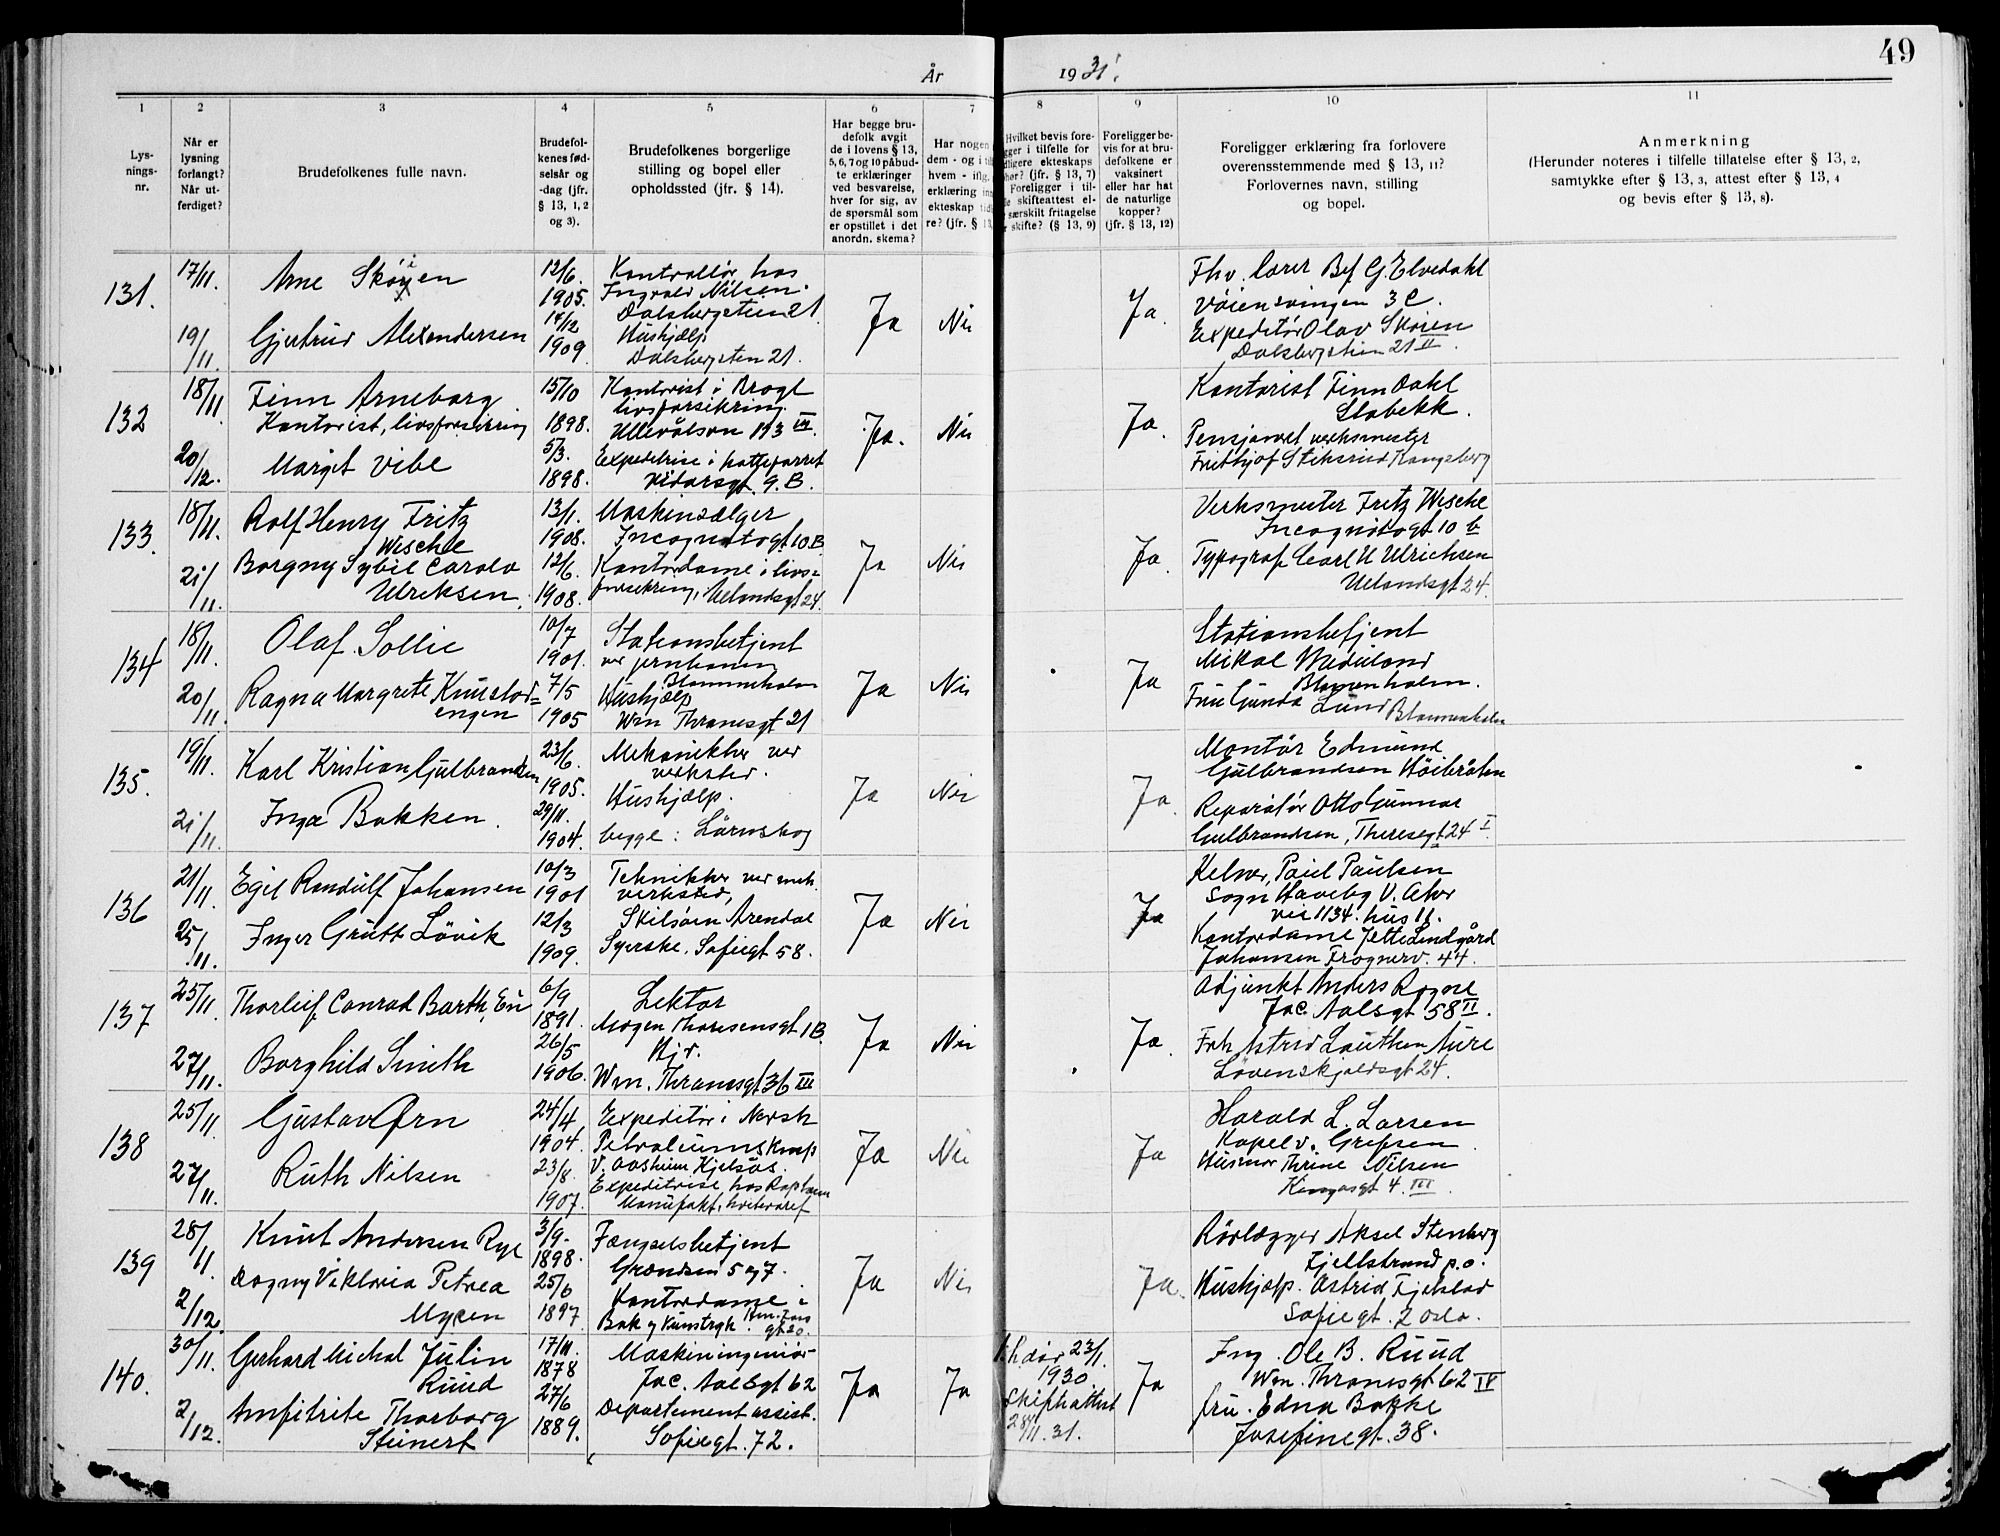 År
19 31.
49
1
2
3
4
5
6
7
8
9
10
11
Lys-
nings-
nr.
Når er
lysning
forlangt?
Når ut-
ferdiget?
Brudefolkenes fulle navn.
Brudefol-
kenes fød-
selsår og
-dag (jfr.
§ 13, 1, 2
og 3).
Brudefolkenes borgerlige
stilling og bopel eller
opholdssted (jfr. § 14).
Har begge bru-
defolk avgit
de i lovens § 13,
5, 6, 7 og 10 påbud-
te erklæringer
ved besvarelse,
hver for sig, av
de spørsmål som
er opstillet i det
anordn. skema?
Har nogen
dem - og i til
hvem - iflg.
erklæring inn
ekteskap tid
re? (jfr. § 13
Hvilket bevis fore-
gger i tilfelle for
dligere ekteskaps
hør? (jfr. § 13, 7)
Foreligger i til-
le skifteattest el-
særskilt fritagelse
r skifte? (§ 13, 9)
Foreligger be-
vis for at bru-
defolkene er
vaksinert
eller har hat
de naturlige
kopper?
(jfr. § 13, 12)
Foreligger erklæring fra forlovere
overensstemmende med § 13, 11?
Forlovernes navn, stilling
og bopel.
Anmerkning
(Herunder noteres i tilfelle tillatelse efter § 13, 2,
samtykke efter § 13, 3, attest efter § 13, 4
og bevis efter § 13, 8).
131.
17/11.
19/11.
Arne Skøyen
i
Gjertrud Alexandersen
12/6.
1905.
14/12
1909.
Kontrollør hos
Ingvald Nilsen.
Dalsbergstien 21
Hushjælp
Dalsbergstien 21.
Ja
Nei
Ja.
Fhv. lærer Bef G. Elvedahl
Vøiensvingen 3 C.
Expeditør Olav Skøien
Dalsbergstien 21 II.
132
18/11.
20/12.
Finn Arneborg
Kontorist, livsforsikring
Margit Vibe
15/10
1898.
5/3.
1898.
Kontorist i Brage
livsforsikring.
Ullevålsvn 113 IV.
Expeditrise i kaffeforret
Vidarsgt. 9. B.
Ja.
Nei
Ja.
Kontorist Finn Dahl
Stabekk.
Pensjonert verksmester
Frithjof Stiksrud Kongsberg
133.
18/11.
21/11.
Rolf Henry Fritz
Weschе
Borgny Sybil Carola
Ulriksen.
13/1.
1908.
12/6.
1908.
Maskinsælger
Incognitogt. 10 B.
Kontordame i livs-
forsikring, Uelandsgt 24.
Ja
Nei
Ja.
Verksmester Fritz Wesche
Incognitogt 10 b
Typograf Carl U Ulrichsen
Uelandsgt 24.
134
18/11.
20/11.
Olaf Sollie
Ragna Margrete Knustad-
engen
10/7
1901.
7/5
1905
Stationsbetjent
ved jernbanen
Blommenholm
Hushjælp
Wm Thranesgt 21
Ja
Nei
Ja
Stationsbetjent
Mikal
Blommenholm.
Fru Gunda Lund Blommenholm
135.
19/11.
21/11.
Karl Kristian Gulbrandsen
Inga Bakken.
23/6.
1905.
29/11.
1904.
Mekanikker ved
verksted.
Hushjælp.
begge: Lørenskog
Ja
Nei
Ja.
Montør Edmund
Gulbrandsen Høibråten
Reparatør Otto Gunnar
Gulbrandsen, Theresegt 24 I.
136
21/11.
25/11.
Egil Randulf Johansen
Inger Grutt Løvik
10/3
1901
12/3
1909.
Teknikker ved mek.
verksted,
Skilsøen Arendal
Syerske. Sofiegt 58.
Ja
Nei
Ja
Kelner, Paul Paulsen
Sogn Haveby V. Aker
vei 1134. hus 11.
Kontordame Jette Lindgård
Johansen Frognerv. 44.
137
25/11.
27/11.
Thorleif Conrad Barth, Eu
Borghild Smith
6/9
1891.
26/5
1906.
Lektor
Magen Thoresensgt 1 B
Hjv.
Wm. Thranesgt. 36 III
Ja
Nei
Ja.
Adjunkt Anders Rogne
Jac Aalsgt 58 II.
Frk Astrid Lauthen Aure
Løvenskjoldsgt 24.
138
25/11.
27/11.
Gustav Ørn
Ruth Nilsen
24/4
1904.
23/8.
1907.
Expeditør i Norsk
Petroleumskomp
V. Aasheim Kjelsås.
Expeditrise hos
Manufakt.
Ja
Nei
Ja
Harald L. Larsen
Kapelv. Grefsen
Husmor Thrine Nilsen
Kingosgt 4. III.
139
28/11.
2/12.
Knut Andersen Rye
Dagny Viktoria Petrea
Myren
3/9.
1898.
25/6
1897.
Fængselsbetjent
Grændsen 5 og 7.
Kontordame i
Bok og Kunsttryk.
gt. 20.
Ja
Nei
Ja.
Rørlægger Aksel Stenberg
Fjellstrand p.o.
Hushjelp. Astrid Fjelstad
Sofiegt. 2 Oslo.
140.
30/11.
2/12.
Gerhard Michal Julin
Ruud
Amfitrite Thorborg
Steinert
17/11
1878
27/6
1889.
Maskiningeniør
Jac. Aalsgt 62
Departement assist.
Sofiegt. 72.
Ja
Ja
død 23/1.
1930.
Skifteattest
28/11.31.
Ja
Ing. Ole B. Ruud
Wm. Thranesgt 62 IV
fru. Edna Bakke
Josefinegt. 38.